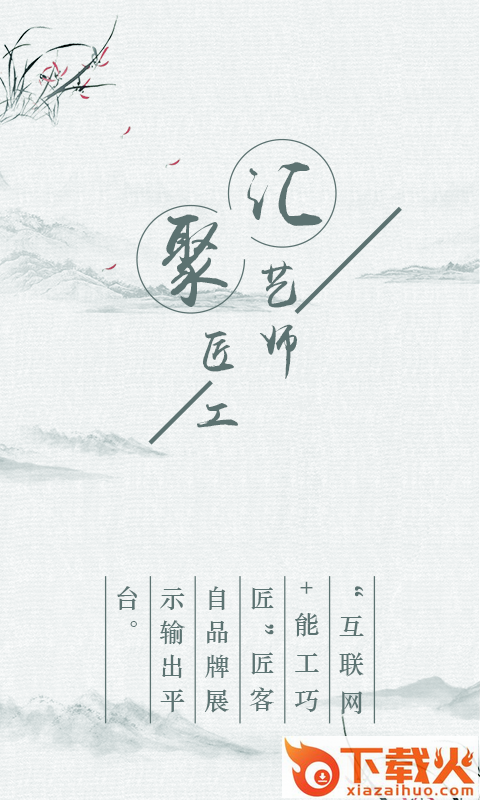 汇艺师
聚匠工
“互联网
+能工巧
匠”匠客
自品牌展
示输出平
台。
下载火
xiazaihuo.com